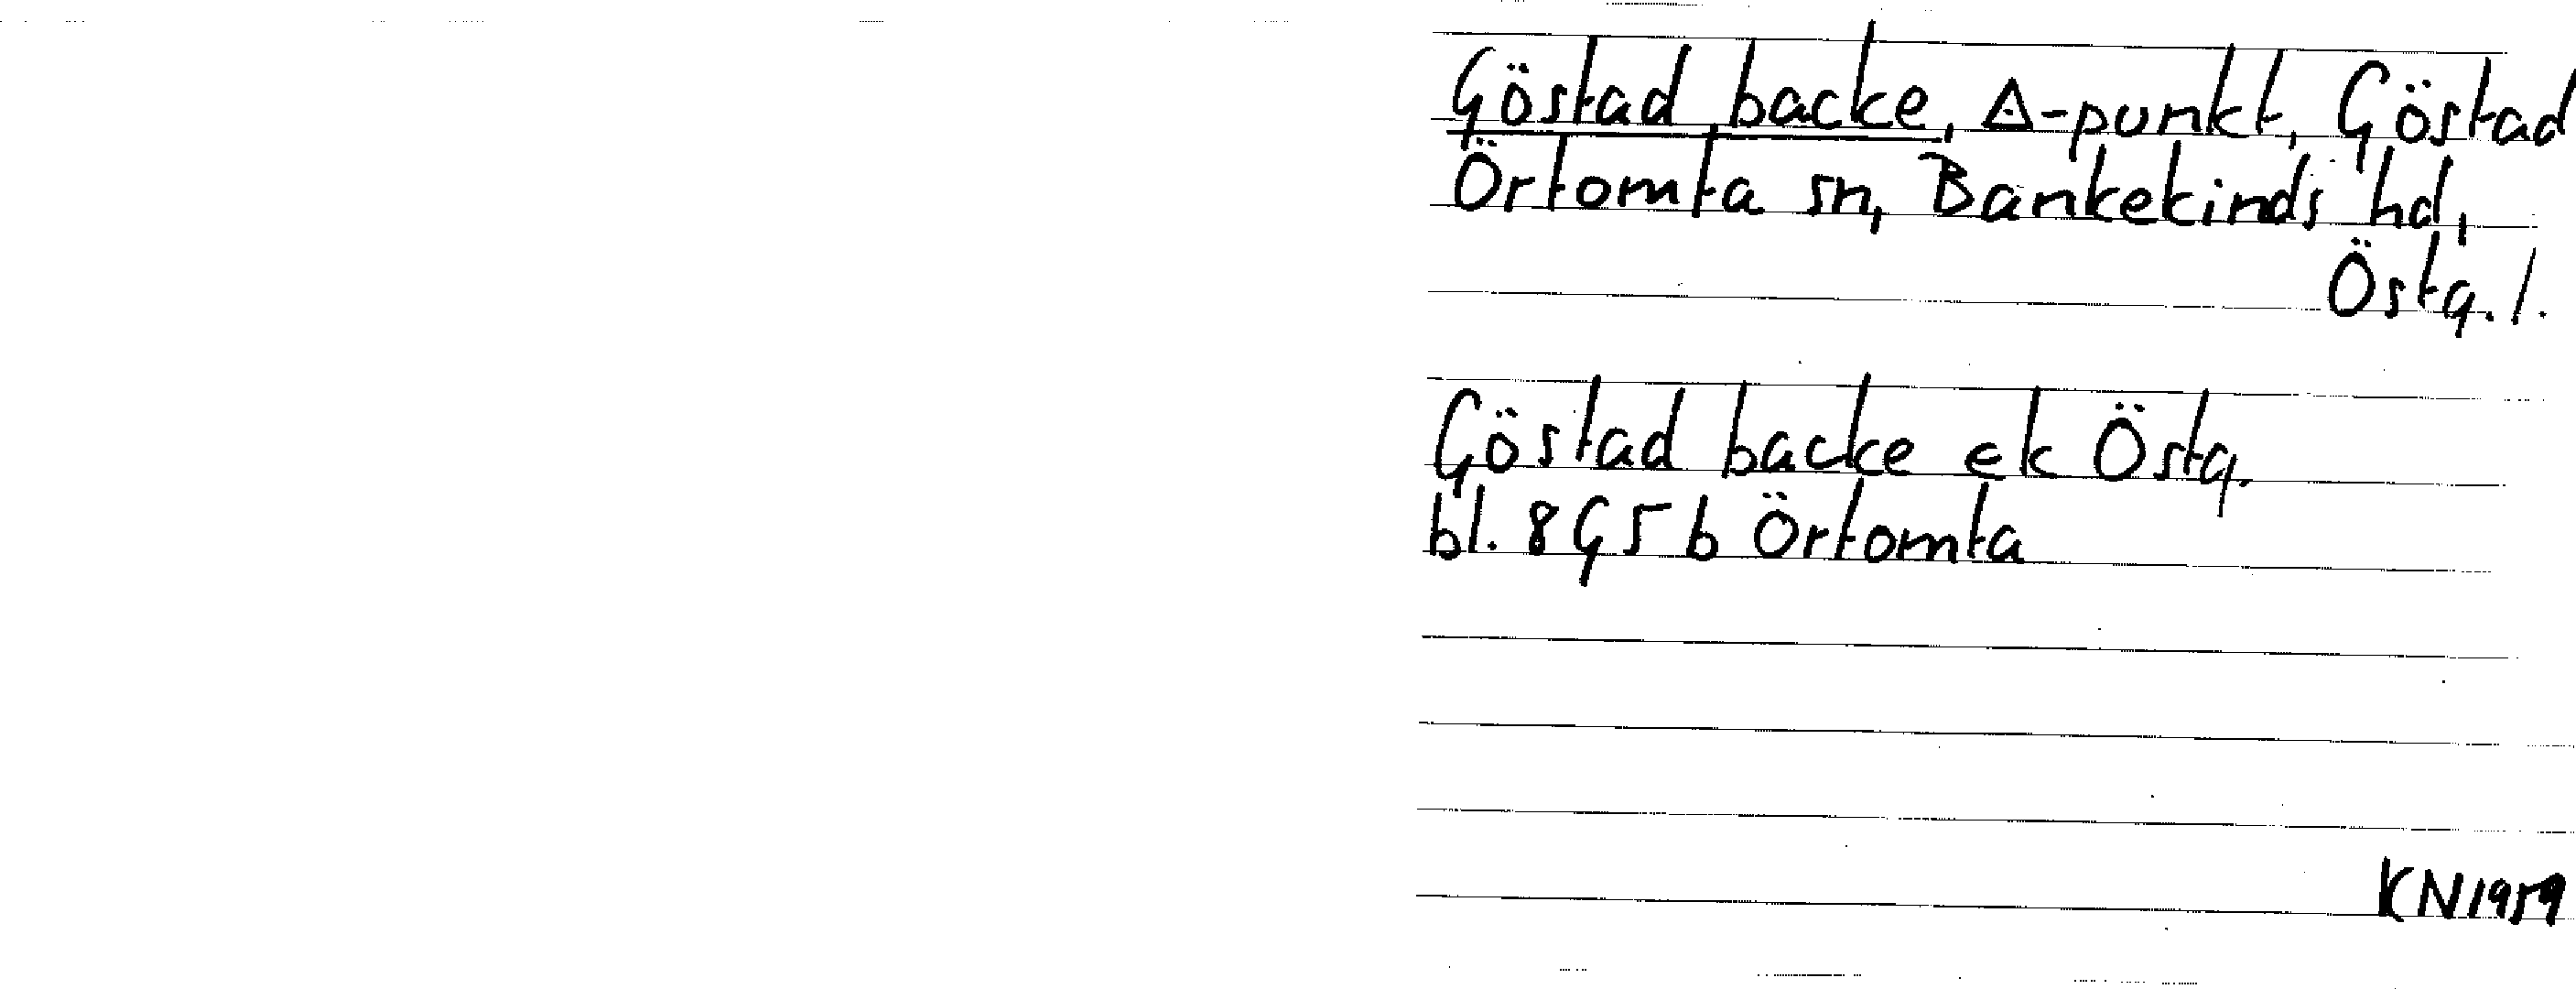 Göstad backe, Δ-punkt, Göstad
Örtomta sn, Bankekinds hd,
Östg. l.
Göstad backe ek Östg.
bl. 8G5b Örtomta
KN1959